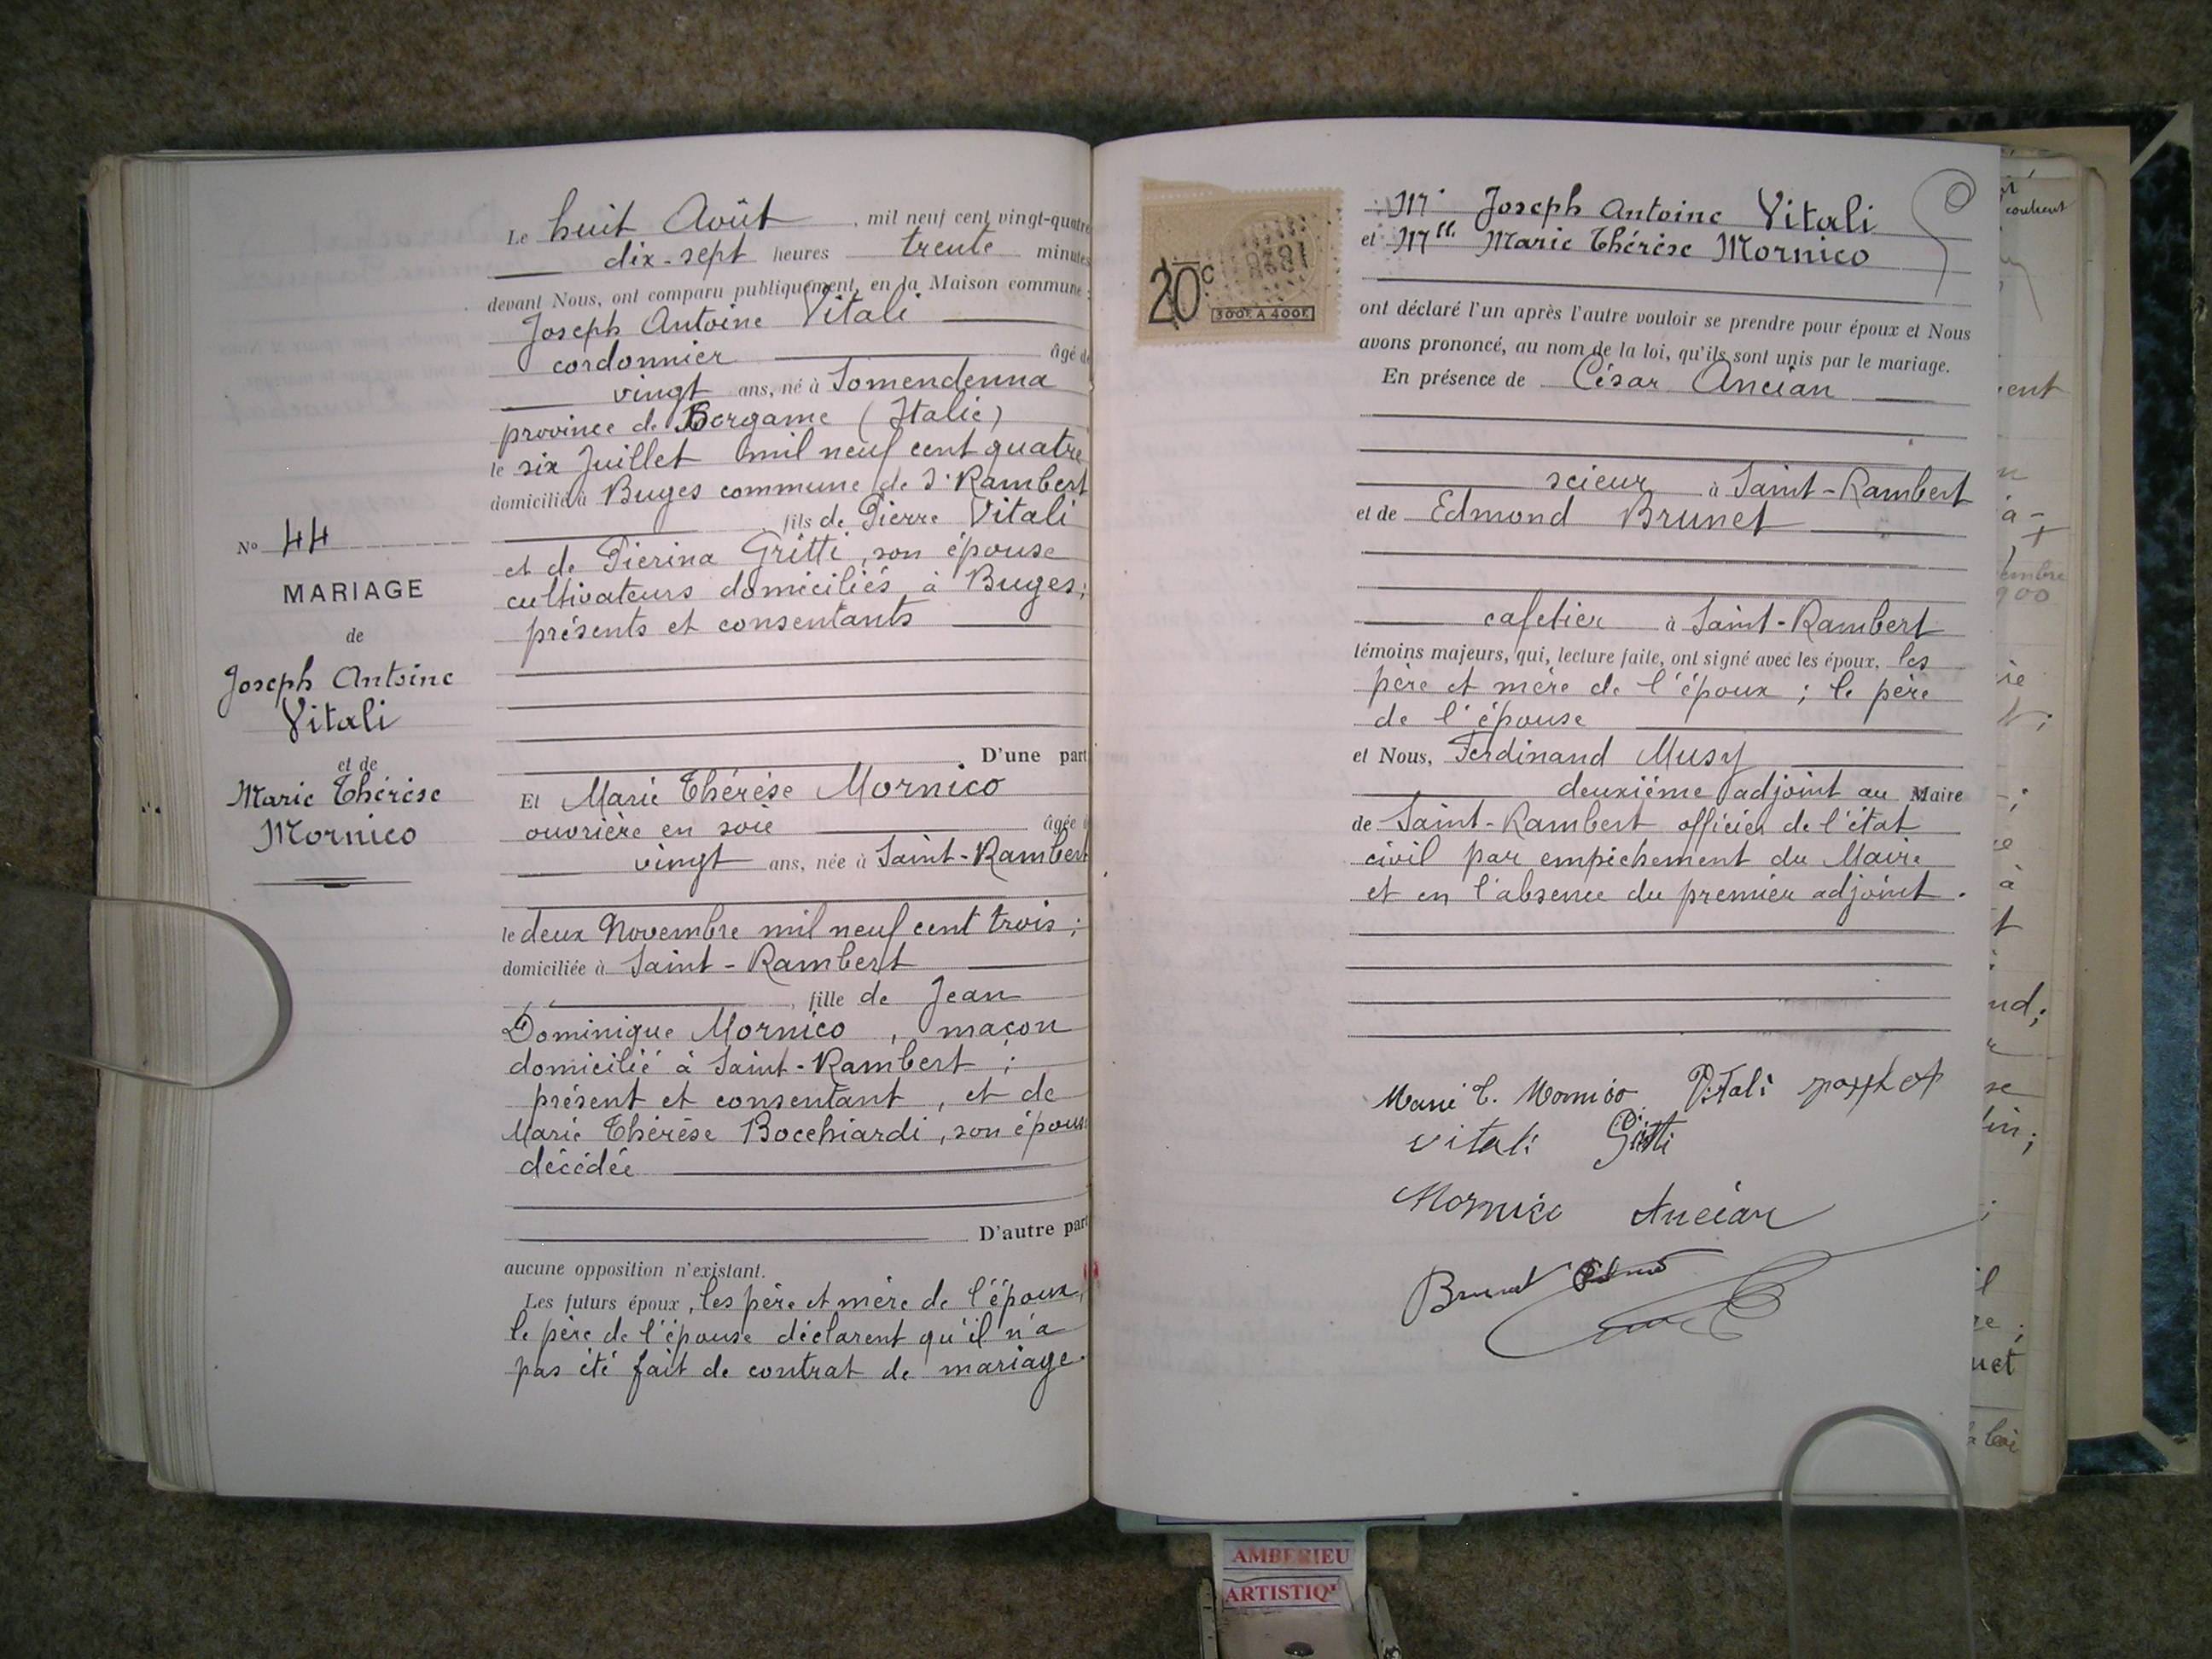 Le huit Août, mil neuf cent vingt-quatre
dix-sept heures trente minutes
devant Nous, ont comparu publiquement, en la Maison commune :
Joseph Antoine Vitali
cordonnier âgé de
vingt ans, né à Somendenna
province de Bergame (Italie)
le six Juillet mil neuf cent quatre
domicilié à Buges commune de St Rambert
fils de Pierre Vitali
et de Pierina Gritti, son épouse
cultivateurs domiciliés à Buges;
présents et consentants
D'une part
Et Marie Thérèse Mornico
ouvrière en soie âgée
vingt ans, née à Saint-Rambert
le deux Novembre mil neuf cent trois;
domiciliée à Saint-Rambert
, fille de Jean
Dominique Mornico, maçon
domicilié à Saint-Rambert;
présent et consentant, et de
Marie Thérèse Bocchiardi, son épouse
décédée
D'autre part
aucune opposition n'existant.
Les futurs époux, les père et mère de l'époux,
le père de l'épouse déclarent qu'il n'a
pas été fait de contrat de mariage.
No 44
MARIAGE
de
Joseph Antoine
Vitali
et de
Marie Thérèse
Mornico
20c
300F. A 400F.
Mr Joseph Antoine Vitali
et Mlle Marie Thérèse Mornico
ont déclaré l'un après l'autre vouloir se prendre pour époux et Nous
avons prononcé, au nom de la loi, qu'ils sont unis par le mariage.
En présence de César Ancian
scieur à Saint-Rambert
et de Edmond Brunet
cafetier à Saint-Rambert
témoins majeurs, qui, lecture faite, ont signé avec les époux, les
père et mère de l'époux; le père
de l'épouse
et Nous, Ferdinand Musy
deuxième adjoint au Maire
de Saint-Rambert officier de l'état
civil par empêchement du Maire
et en l'absence du premier adjoint.
Marie T. Mornico Vitali
Vitali Gritti
Mornico Ancian
Brunet
AMBERIEU
ARTISTIQ